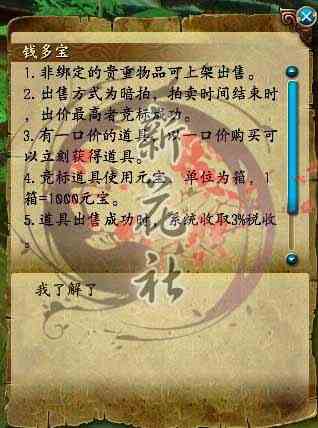 钱多宝
1.非绑定的贵重物品可上架出售。
2.出售方式为暗拍，拍卖时间结束时
，出价最高者竞标成功。
3.有一口价的道具，以一口价购买可
以立刻获得道具。
4.竞标道具使用元宝，单位为箱，1
箱=1000元宝。
5.道具出售成功时，系统收取3%税收
。
我了解了
新花社